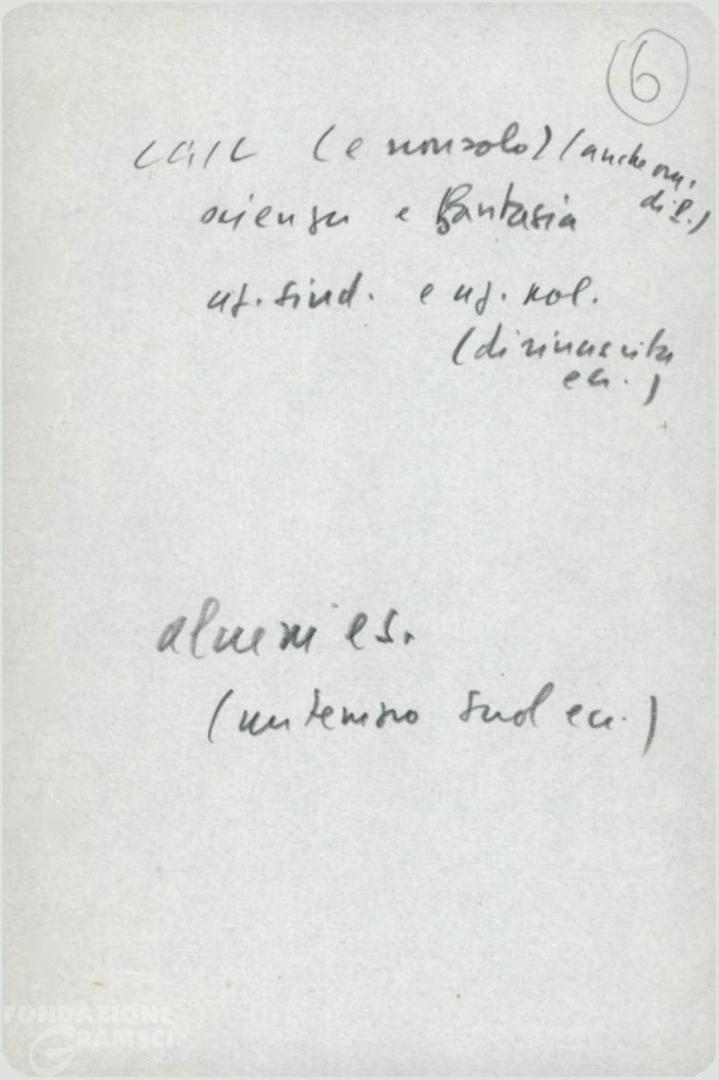 6
CGIL (e non solo) (anche
scienza e fantasia
uf. sind. e uf. pol.
(di rinascita
ecc.)
alcuni es.
(un tempo sud ecc.)
FONDAZIONE
GRAMSCI